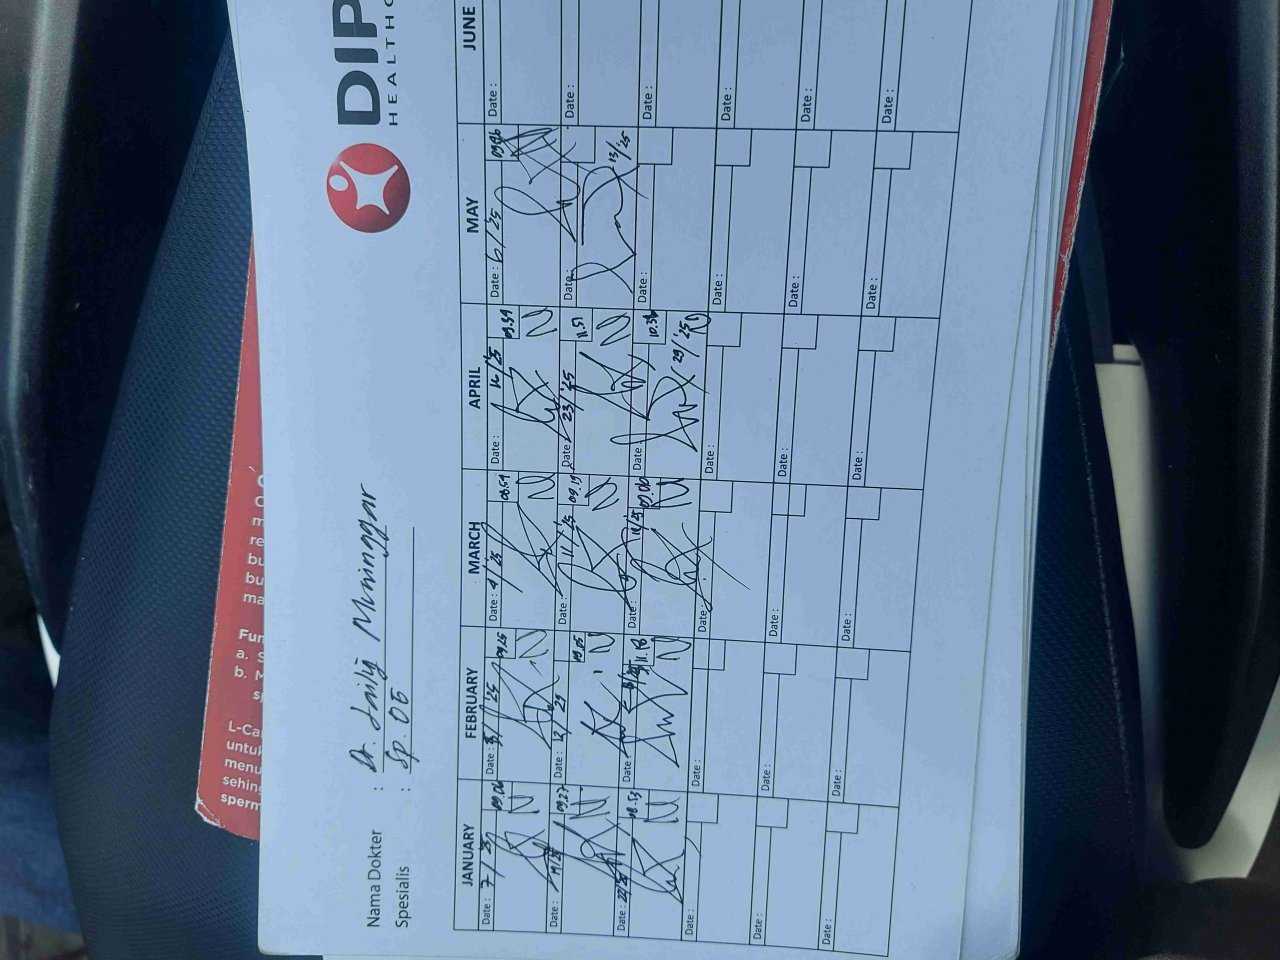 DIP
HEALTHC
Nama Dokter : Dr. Laily Muninggar
Spesialis : Sp. OG
JANUARY FEBRUARY MARCH APRIL MAY JUNE
Date : 7/25 09.06 Date : 5/25 09.25 Date : 4/25 08.59 Date : 16/25 09.59 Date : 6/25 09.06 Date :
Date : 14/25 09.27 Date : 12/29 09.05 Date : 11/25 09.19 Date : 23/25 11.51 Date : 13/25 Date :
Date : 22/25 08.53 Date : 11.18 Date : 18/25 09.06 Date : 29/25 10.36 Date : Date :
Date : Date : Date : Date : Date : Date :
Date : Date : Date : Date : Date : Date :
Date : Date : Date : Date : Date : Date :
re
bu
bu
ma
Fun
a. S
b. M
sp
L-Ca
untuk
menu
sehing
sperm